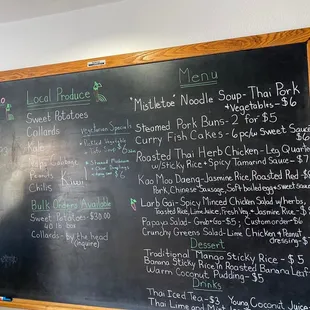 Local Produce
Sweet Potatoes
Collards
Kale
Cabbage
Peanuts
Chilis
Kiwi
Vegetarian Specials
Bulk Orders Available
Sweet Potatoes - $30.00
40 lb box
Collards - by the head
(inquire)
Menu
"Mistletoe" Noodle Soup - Thai Pork
+ Vegetables - $6
Steamed Pork Buns - 2 for $5
Curry Fish Cakes - 6 pc w/ Sweet Sauce
$6
Roasted Thai Herb Chicken - Leg Quarter
w/ Sticky Rice + Spicy Tamarind Sauce - $7
Kao Moo Daeng - Jasmine Rice, Roasted Red
Pork, Chinese Sausage, Soft boiled egg + sweet sauce
Larb Gai - Spicy Minced Chicken Salad w/ herbs,
Roasted Rice, Lime Juice, Fresh Veg + Jasmine Rice - $
Papaya Salad - Grab + Go - $5, Custom order $6
Crunchy Greens Salad - Lime Chicken + Peanut
dressing - $
Dessert
Traditional Mango Sticky Rice - $5
Banana Sticky Rice in Roasted Banana Leaf
Warm Coconut Pudding - $5
Drinks
Thai Iced Tea - $3 Young Coconut Juice
Thai Lime